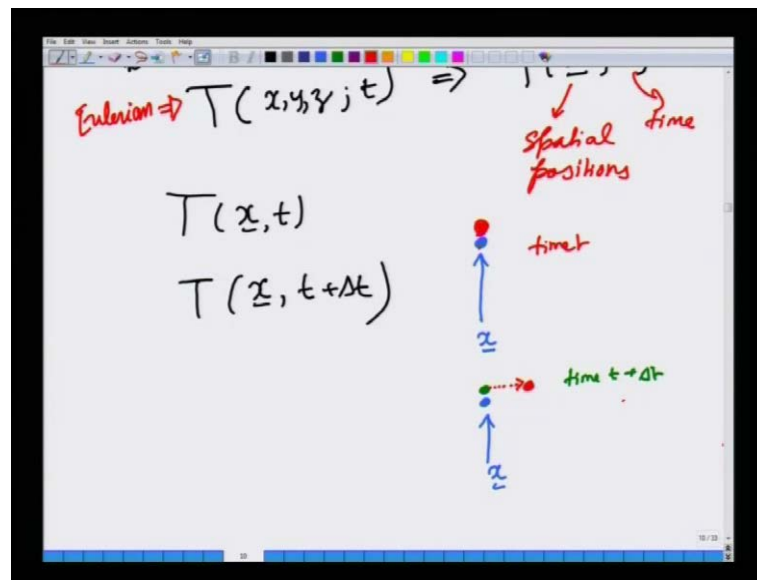 File Edit View Insert Actions Tools Help
Eulerian ⇒ T(x,y,z; t) ⇒
time
Spatial
positions
T(x, t)
time t
T(x, t+Δt)
x
time t + Δt
x
10
10/33